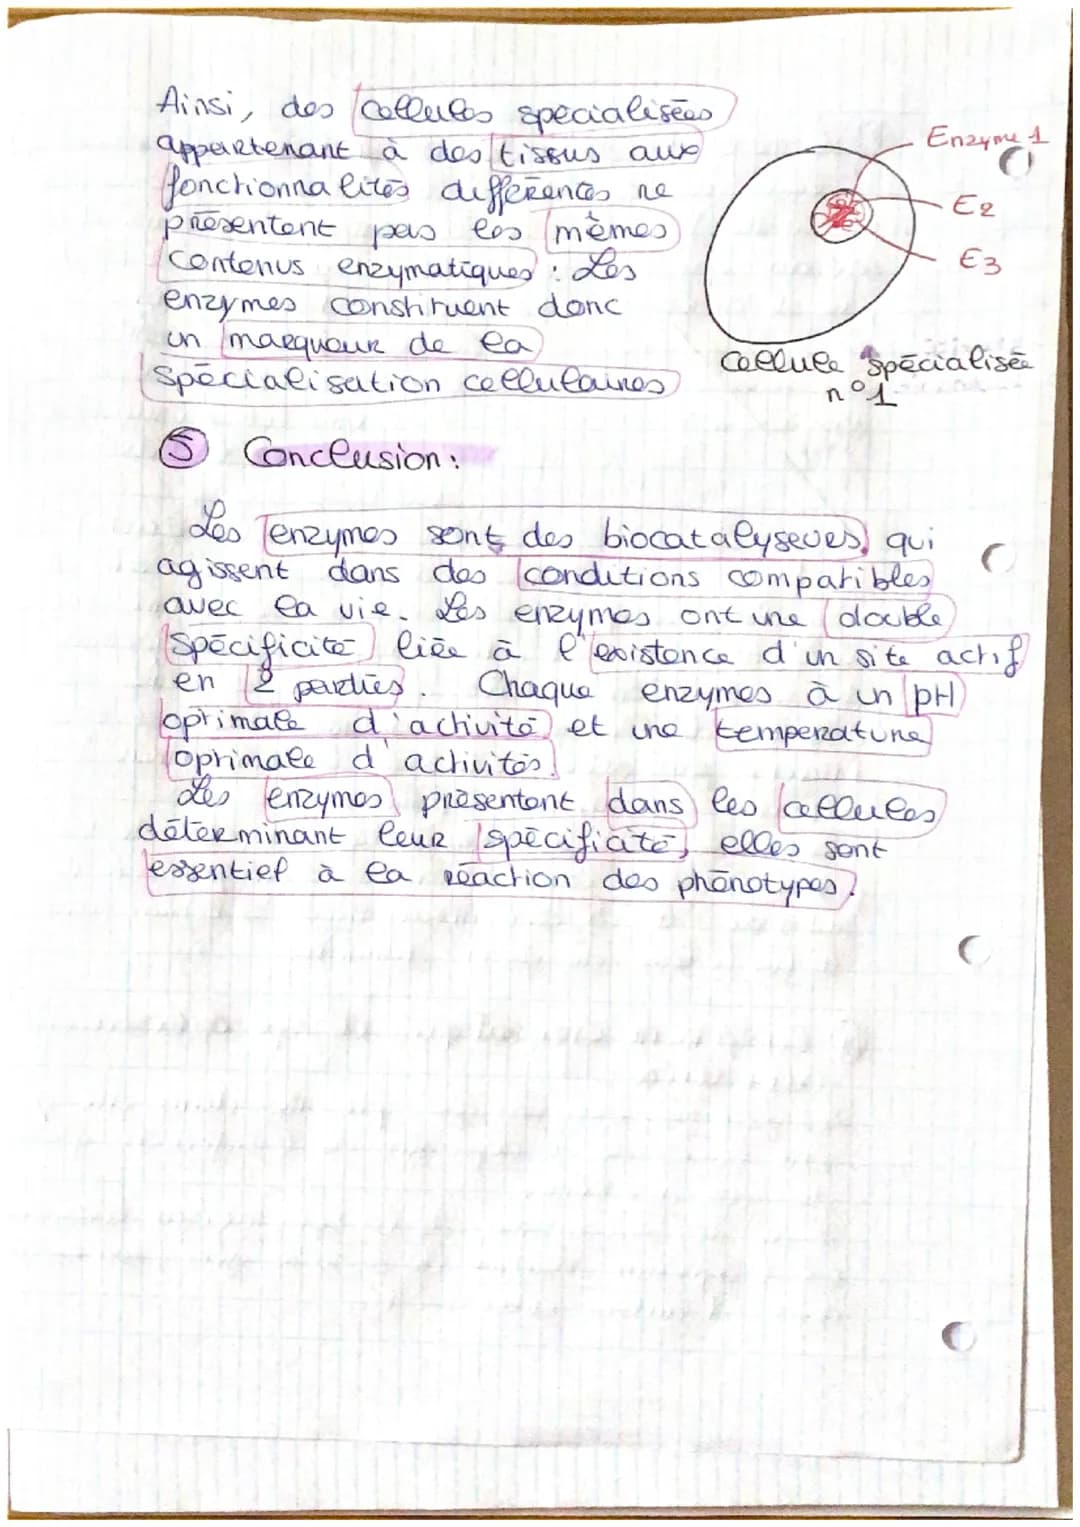 Ainsi, des cellules spécialisées
appartenant à des tissus aux
fonctionnalités différentes ne
présentent pas les mêmes
contenus enzymatiques : Les
enzymes constituent donc
un marqueur de la
spécialisation cellulaires
Enzyme 1
E2
E3
Cellule spécialisée
n°1
5 Conclusion :
Les enzymes sont des biocatalyseurs qui
agissent dans des conditions compatibles
avec la vie. Les enzymes ont une double
spécificité liée à l'existence d'un site actif
en 2 parties. Chaque enzymes à un pH
optimale d'activité et une température
optimale d'activités.
Les enzymes présentent dans les cellules
déterminant leur spécificité, elles sont
essentiel à la réaction des phénotypes.